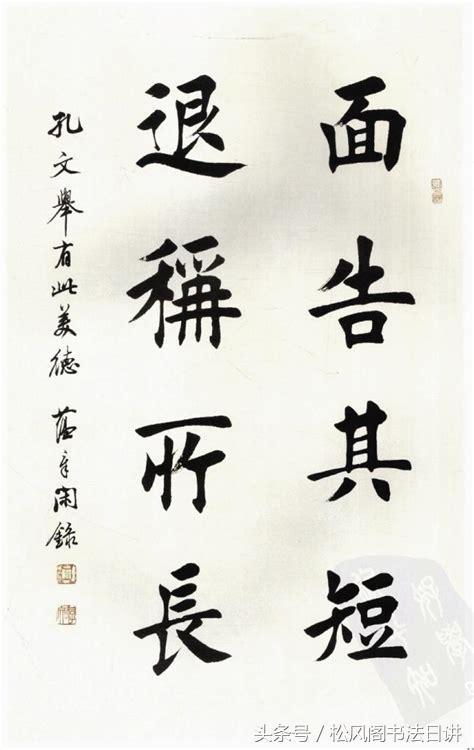 面告其短
退稱所長
孔文舉有此美德 蓝辛閑錄
头条号/松风阁书法日讲